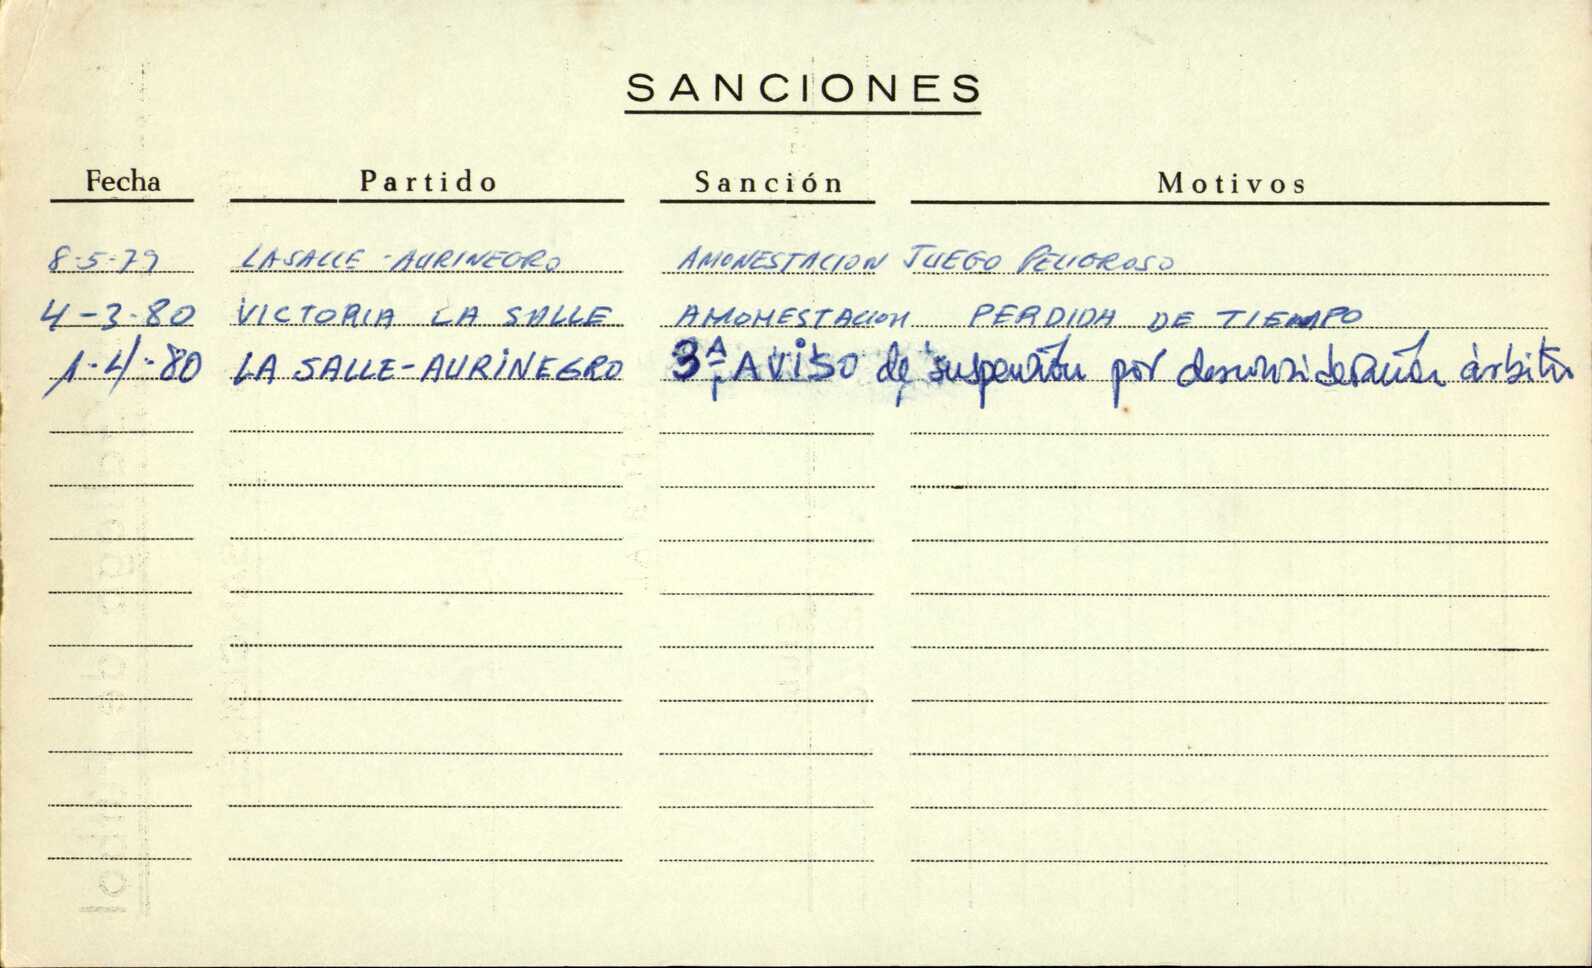 SANCIONES
Fecha Partido Sanción Motivos
8-5-79 LASALLE-AURINEGRO AMONESTACION JUEGO PELIGROSO
4-3-80 VICTORIA LA SALLE AMONESTACION PERDIDA DE TIEMPO
1-4-80 LA SALLE-AURINEGRO 3ª AVISO de suspensión por desconsideración árbitro